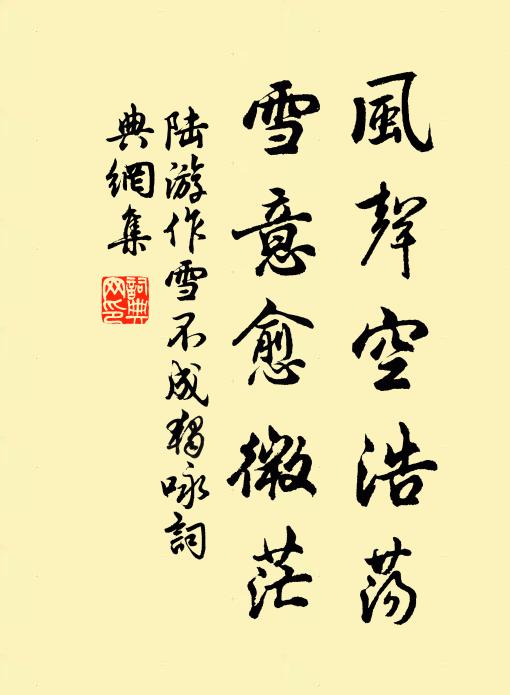 風聲空浩蕩
雪意愈微茫
陸游作雪不成獨詠詞
典網集
詞典
网印